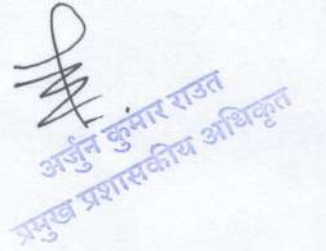 अर्जुन कुमार राउत
प्रमुख प्रशासकीय अधिकृत